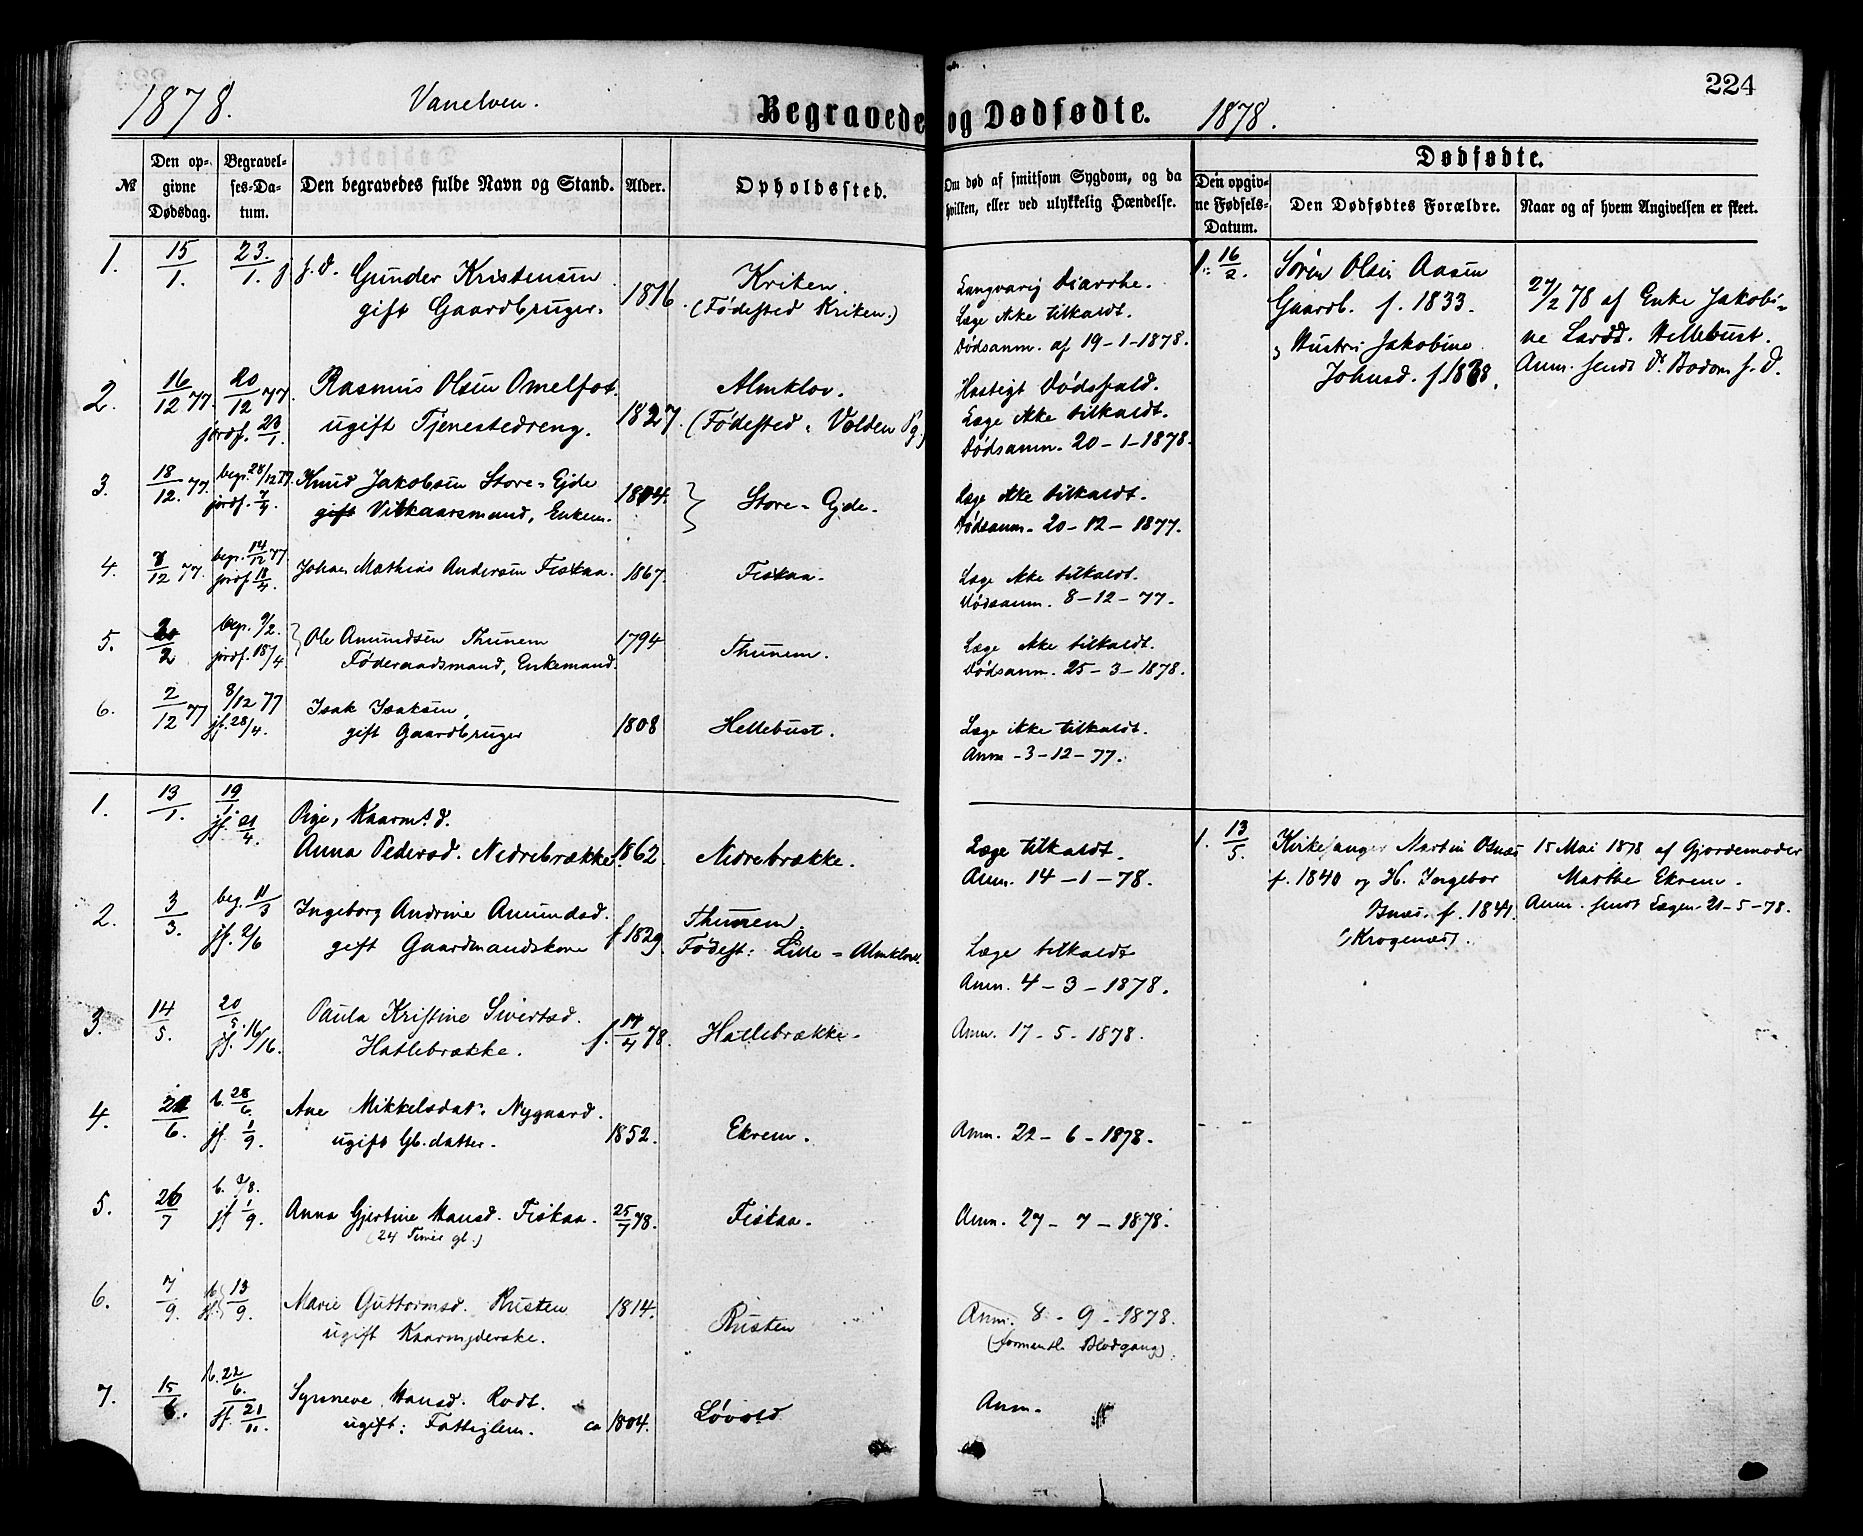 224
1878. Vanelven. Begravede og Dødfødte. 1878.
№ Den opgivne Dødsdag. Begravelses-Datum. Den begravedes fulde Navn og Stand. Alder. Opholdssted. Om død af smitsom Sygdom, og da hvilken, eller ved ulykkelig Hændelse.
Dødfødte.
Den opgivne Fødsels-Datum. Den Dødfødtes Forældre. Naar og af hvem Angivelsen er skeet.
1. 15/1. 23./1. f. d. Gunder Kristensen 1816. Kriken. Langvarig Diarrhe.
gift Gaardbruger. (Fødested Kriken.) Læge ikke tilkaldt.
Dødsanm. af 19-1-1878.
2. 16/12 77. 20/12 77. Rasmus Olsen Omelfot. 1827. Almklov. Hastigt Dødsfald.
jordf. 23/1. ugift Tjenestedreng. (Fødested: Volden Pg.) Læge ikke tilkaldt.
Dødsanm. 20-1-1878.
3. 18/12. 77. begr. 28/12 77. Knud Jakobsen Store-Ejde 1804. Store-Ejde. Læge ikke tilkaldt.
jordf. 7/4. gift Vilkaarsmand, Enkem. Dødsanm. 20-12-1877.
4. 8/12 77. begr. 14/12 77 Johan Mathias Andersen Fiskaa. 1867. Fiskaa. Læge ikke tilkaldt.
jordf. 18/4. Dødsanm. 8-12-77.
5. 2/2 begr. 9/2. Ole Amundsen Thunem 1794 Thunem. Læge ikke tilkaldt.
jordf. 18/4 Føderaadsmand, Enkemand. Dødsanm. 25-3-1878.
6. 2/12 77 8/12 77 Isak Isaksen, 1808 Hellebust. Læge ikke tilkaldt.
jf. 28/4. gift Gaardbruger Anm. 3-12-77.
1. 16/2. Søren Olsen Aasen
Gaardb. f. 1833.
Hustru Jakobine
Johnsd. f. 1838.
27/2 78 af Enke Jakobi-
ne Larsd. Hellebust.
Anm. sendt Dr. Bodom s. D.
1. 13/1. 19/1. Pige, Kaarm.d.
jf. 21/4. Anna Pedersd. Nedrebrække. 1862. Nedrebrække. Læge tilkaldt.
Anm. 14-1-78.
2. 3/3. beg. 11/3 Ingeborg Andrine Amundsd. f 1829. Thunem.
jf. 2/6 gift Gaardmandskone Fødest: Lille-Almklov. Læge tilkaldt
Anm. 4-3-1878.
3. 14/5. 20/5 Paula Kristine Sivertsd. f. 17/4 78. Hatlebrække. Anm. 17-5-1878.
jf. 16/16. Hatlebrække.
4. 21/6. b. 28/6. Ane Mikkelsdat. Nygaard. 1852. Ekrem. Anm. 22-6-1878.
jf. 1/9. ugift Gb. datter.
5. 26/7 b. 2/8. Anna Gjertine Hansd. Fiskaa. 25/7 78. Fiskaa. Anm. 27-7-1878.
jf 1/9. (24 Timer gl.)
6. 7/9. b. jf. 13/9. Marie Guttormsd. Rusten 1814. Rusten Anm. 8-9-1878.
ugift Kaarmjderske. (formentl. Blodgang)
7. 15/6. b. 22/6. Synneve Hansd. Rødt. ca 1804. Løvold Anm.
jf. 21/11. ugift: Fattiglem.
1. 13/5. Kirkesanger Martin Osnæs
f. 1840 og H. Ingebor
Osnæs. f. 1841.
(Krogenæs).
15 Mai 1878 af Gjordemoder
Marthe Ekrem.
Anm. sendt Lægen 21-5-78.